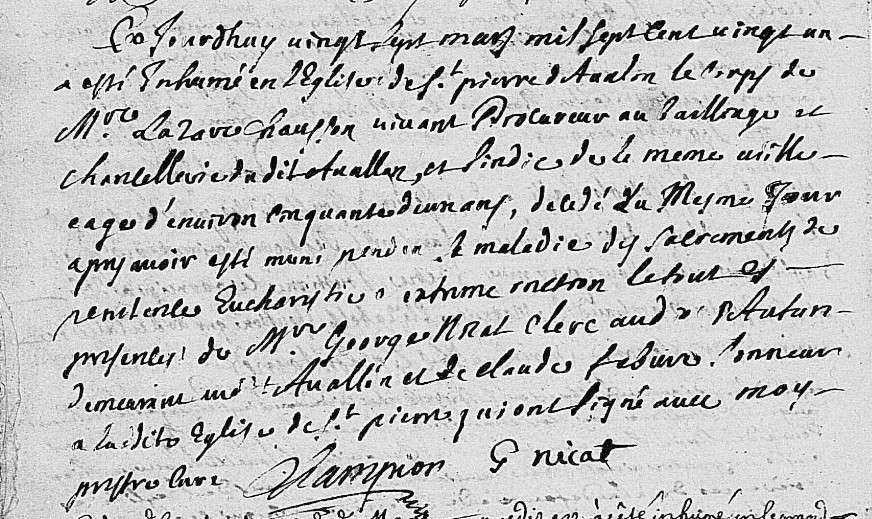 Ce Jourdhuy vingt sept mars mil sept cent vingt un
a esté Inhumé en l'Eglise de St. pierre d'Avalon le Corps de
Mre Lazare Chausson vivant Procureur au Bailliage et
chancellerie dudit Avallon, et sindic de le meme ville
eage d'environ Cinquante deux ans, decedé Le Mesme Jour
apres avoir esté muni penden la maladie des sacrements de
penitence Eucharistie extreme onction le tout es
presences de Mre George Nicat Clerc d'Autun
demeurant Avallon et de Claude febvre sonneur
a ladite Eglise de St. pierre qui ont signé avec moy
prestre Curé Champion G nicat